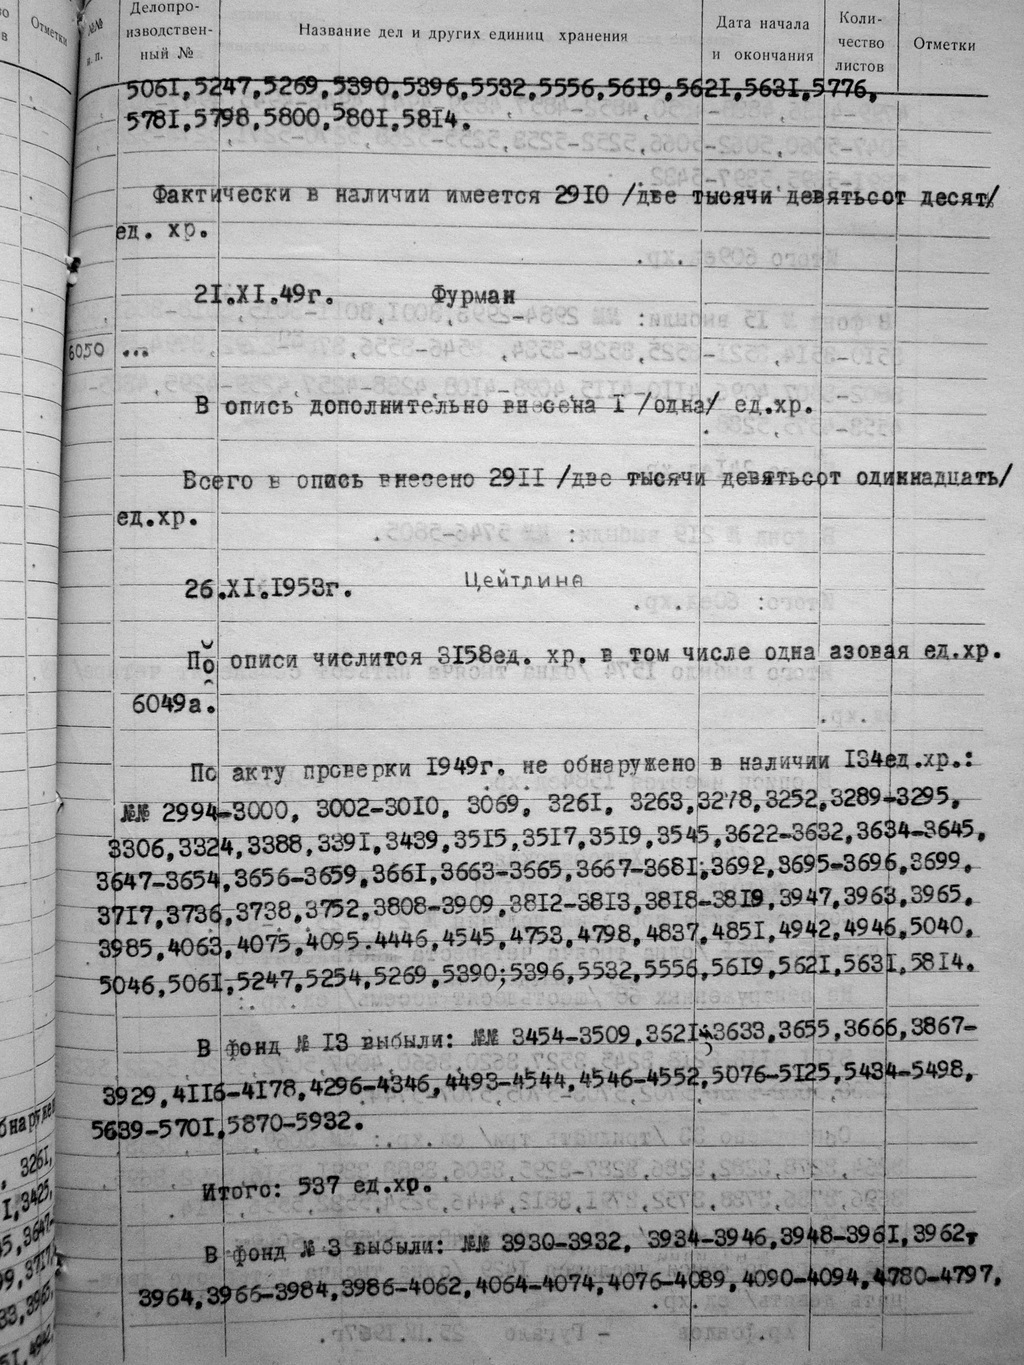 Отметки
№№
п. п.
Делопро-
изводствен-
ный №
Название дел и других единиц хранения
Дата начала
и окончания
Коли-
чество
листов
Отметки
5061,5247,5269,5390,5396,5532,5556,5619,5621,5631,5776,
5781,5798,5800,5801,5814.
Фактически в наличии имеется 2910 /две тысячи девятьсот десят/
ед. хр.
21.XI.49г. Фурман
6050 ...
В опись дополнительно внесена I /одна/ ед.хр.
Всего в опись внесено 2911 /две тысячи девятьсот одиннадцать/
ед.хр.
26.XI.1953г. Цейтлина
По описи числится 3158ед. хр. в том числе одна азовая ед.хр.
6049а.
По акту проверки 1949г. не обнаружено в наличии 134ед.хр.:
№№ 2994-3000, 3002-3010, 3069, 3261, 3263,3278,3252,3289-3295,
3306,3324,3388,3391,3439,3515,3517,3519,3545,3622-3632,3634-3645,
3647-3654,3656-3659,3661,3663-3665,3667-3681,3692,3695-3696,3699,
3717,3736,3738,3752,3808-3909,3812-3813,3818-3819,3947,3963,3965,
3985,4063,4075,4095.4446,4545,4753,4798,4837,4851,4942,4946,5040,
5046,5061,5247,5254,5269,5390;5396,5532,5556,5619,5621,5631,5814.
В фонд № 13 выбыли: №№ 3454-3509,3621,3633,3655,3666,3867-
3929,4116-4178,4296-4346,4493-4544,4546-4552,5076-5125,5434-5498,
5639-5701,5870-5932.
Итого: 537 ед.хр.
В фонд № 3 выбыли: №№ 3930-3932, 3934-3946,3948-3961,3962,
3964,3966-3984,3986-4062,4064-4074,4076-4089,4090-4094,4780-4797,